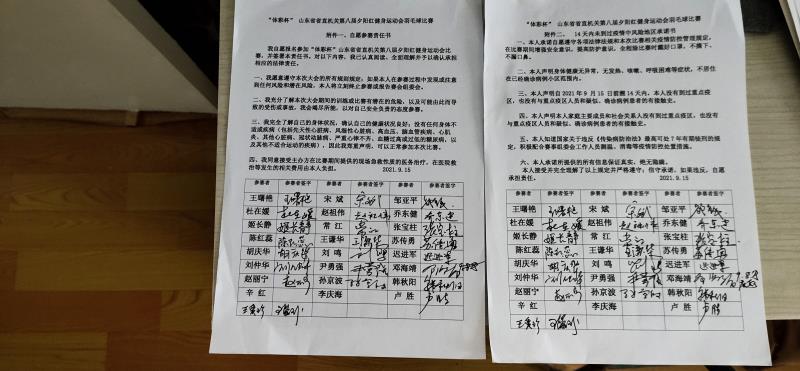 "体彩杯" 山东省省直机关第八届夕阳红健身运动会羽毛球比赛
附件一、自愿参赛责任书
我自愿报名参加"体彩杯"山东省省直机关第八届夕阳红健身运动会比
赛,并签署本责任书。对以下内容,我已认真阅读、全面理解并予以确认承担
相应的法律责任。
一、我愿意遵守本次大会的所有规则规定;如果本人在参赛过程中发现或注意
到任何风险和潜在风险,本人将立刻终止参赛或报告赛会组委会。
二、我充分了解本次大会期间的训练或比赛有潜在的危险,以及可能由此而导
致的受伤或事故,我会竭尽所能,以对自己安全负责的态度参赛。
三、我完全了解自己的身体状况,确认自己的健康状况良好;没有任何身体不
适或疾病(包括先天性心脏病、风湿性心脏病、高血压、脑血管疾病、心肌
炎、其他心脏病、冠状动脉病、严重心律不齐、血糖过高或过低的糖尿病、以
及其他不适合运动的疾病),因此我郑重声明,可以正常参加本次比赛。
四、我同意接受主办方在比赛期间提供的现场急救性质的医务治疗。在医院救
治等发生的相关费用由本人负担。 2021.9.15
参赛者 参赛者签字 参赛者 参赛者签字 参赛者 参赛者签字
王曙艳 宋 斌 邹亚平
杜在媛 赵祖伟 乔东健
姬长静 常 江 张宝柱
陈红蕊 王谦华 苏传勇
胡庆华 刘 鸣 迟进军
刘仲华 尹勇强 邓海靖
赵丽宁 孙京波 韩秋阳
辛 红 李庆海 卢 胜
"体彩杯" 山东省省直机关第八届夕阳红健身运动会羽毛球比赛
附件二、 14天内未到过疫情中风险地区承诺书
一、本人承诺自愿遵守各项法律法规和本次比赛相关疫情防控管理规定,
在比赛期间增强安全意识,提高防护意识,全程除比赛时戴好口罩,不摘下、
不漏口鼻。
二、本人声明身体健康无异常,无发热、咳嗽、呼吸困难等症状,不居住
在已经确诊病例小区范围。
三、本人声明自2021年9月15日前推14天内,本人没有到过重点疫
区,也没有与重点疫区人员和疑似、确诊病例患者的有接触史。
四、本人声明本人家庭主要成员和社会关系人没有到过重点疫区,也没有
与重点疫区人员和疑似、确诊病例患者的有接触史。
五、本人知道国家关于违反《传染病防治法》最高可处7年有期徒刑的规
定,积极配合赛事组委会工作人员测温、消毒等疫情防控处置措施。
六、本人承诺所提供的所有信息保证真实,绝无隐瞒。
本人接受并完全理解了以上规定并严格遵守;信守承诺。如果违反,自愿
承担责任。 2021.9.15
参赛者 参赛者签字 参赛者 参赛者签字 参赛者 参赛者签字
王曙艳 宋 斌 邹亚平
杜在媛 赵祖伟 乔东健
姬长静 常 江 张宝柱
陈红蕊 王谦华 苏传勇
胡庆华 刘 鸣 迟进军
刘仲华 尹勇强 邓海靖
赵丽宁 孙京波 韩秋阳
辛 红 李庆海 卢 胜